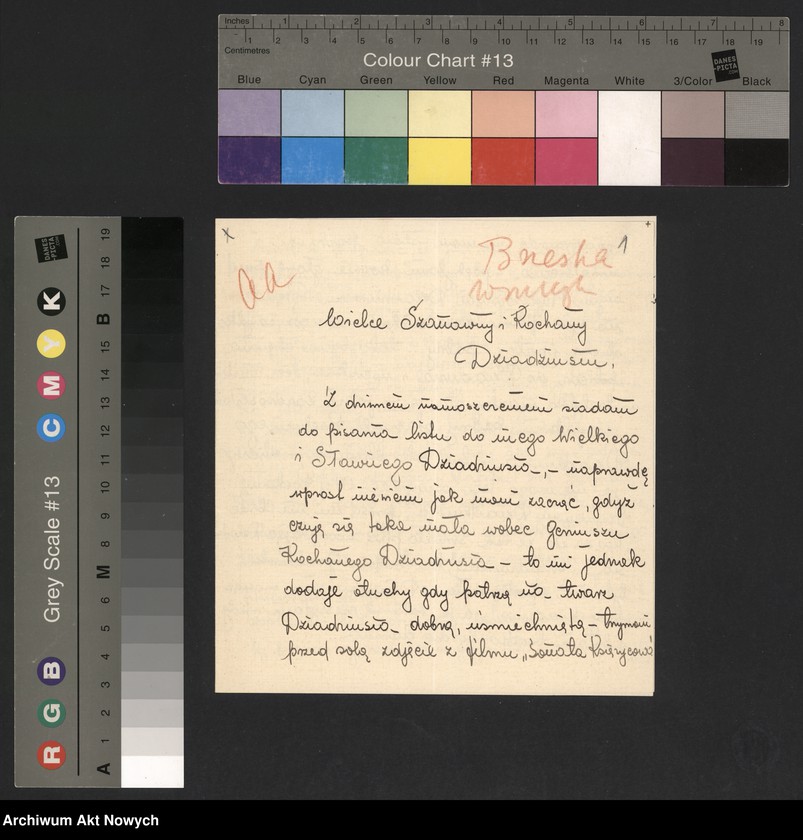 Inches 1 2 3 4 5 6 7 8
Centimetres 1 2 3 4 5 6 7 8 9 10 11 12 13 14 15 16 17 18 19
Colour Chart #13
DANES-PICTA .COM
Blue Cyan Green Yellow Red Magenta White 3/Color Black
DANES-PICTA .COM
Grey Scale #13
R G B C M Y K
A 1 2 3 4 5 6 M 8 9 10 11 12 13 14 15 B 17 18 19
x
aa
1
Wielce Szanowny i Kochany
Dziadziusiu,
Z drżeniem siadam
do pisania listu do mego Wielkiego
i Sławnego Dziadziusia, – naprawdę
wprost niewiem jak mam zacząć, gdyż
czuję się taka mała wobec Geniuszu
Kochanego Dziadziusia – to mi jednak
dodaje otuchy gdy patrzę na twarz
Dziadziusia dobrą, uśmiechniętą – trzymam
przed sobą zdjęcie z filmu „Sonata Księżycowa
Archiwum Akt Nowych